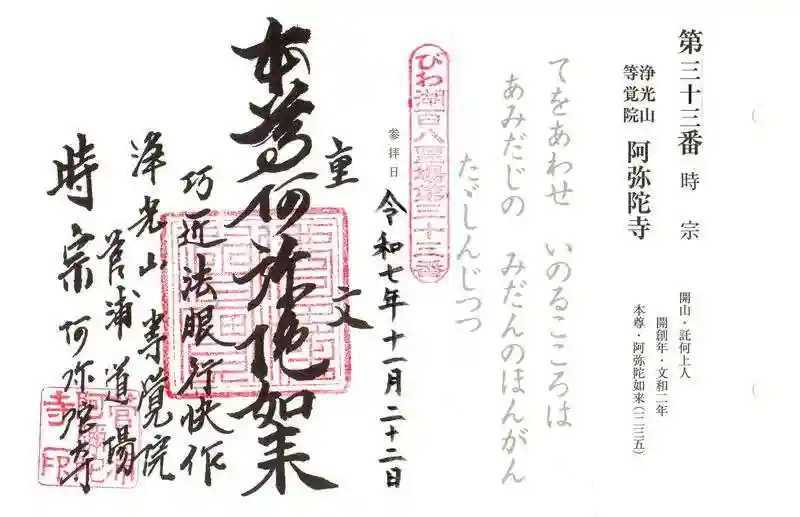 第三十三番 時宗
浄光山
等覚院 阿弥陀寺
開山・託何上人
開創年・文和二年
本尊・阿弥陀如来(一二三五)
てをあわせ いのるこころは
あみだじの みだんのほんがん
たゞしんじつつ
びわ湖百八霊場第三十三番
参拝日 令和七年十一月二十二日
重文
本尊阿弥陀如来
巧匠法眼行快作
浄光山 等覚院
菅浦道場
時宗 阿弥陀寺